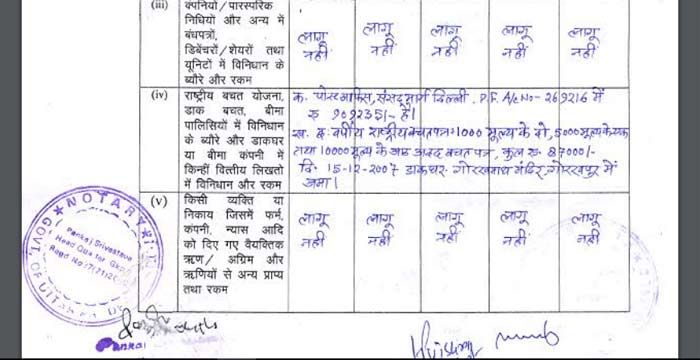 (iii) कंपनियों/पारस्परिक
निधियों और अन्य में
बंधपत्रों,
डिबेंचरों/शेयरों तथा
यूनिटों में विनिधान के
ब्यौरे और रकम
लागू नहीं
लागू नहीं
लागू नहीं
लागू नहीं
लागू नहीं
(iv) राष्ट्रीय बचत योजना,
डाक बचत, बीमा
पालिसियों में विनिधान
के ब्यौरे और डाकघर
या बीमा कंपनी में
किन्हीं वित्तीय लिखतो
में विनिधान और रकम
क. पोस्टआफिस, संसद मार्ग दिल्ली. P.F. A/c No- 269216 में
रु १०१२३५1- है।
वर्षीय राष्ट्रीय बचतपत्र 1000 मूल्य के दो, 5000 मूल्य के एक
तथा 10000 मूल्य के आठ बचत पत्र, कुल रु. 87000/-
दि. 15-12-2007 डाकघर- गोरखनाथ मंदिर, गोरखपुर में
जमा।
(v) किसी व्यक्ति या
निकाय जिसमें फर्म,
कंपनी, न्यास आदि
को दिए गए वैयक्तिक
ऋण/ अग्रिम और
ऋणियों से अन्य प्राप्य
तथा रकम
लागू नहीं
लागू नहीं
लागू नहीं
लागू नहीं
लागू नहीं
NOTARY
GOVT. OF
Pankaj Srivastava
Head Qua for
Regd No
Pankaj